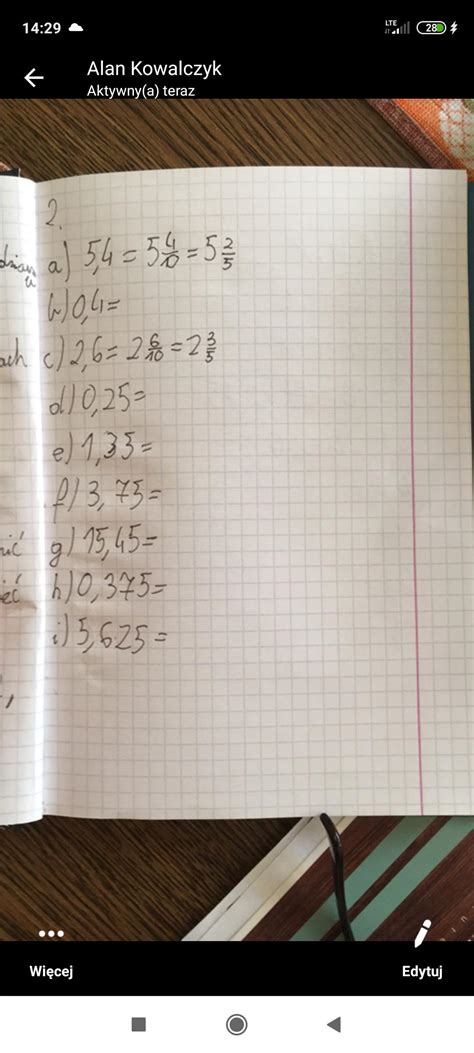 14:29
LTE
28
Alan Kowalczyk
Aktywny(a) teraz
2.
a) 5,4 = 5 4/10 = 5 2/5
b) 0,4 =
ach c) 2,6 = 2 6/10 = 2 3/5
d) 0,25 =
e) 1,35 =
f) 3,75 =
nić g) 15,45 =
h) 0,375 =
i) 5,625 =
Więcej
Edytuj